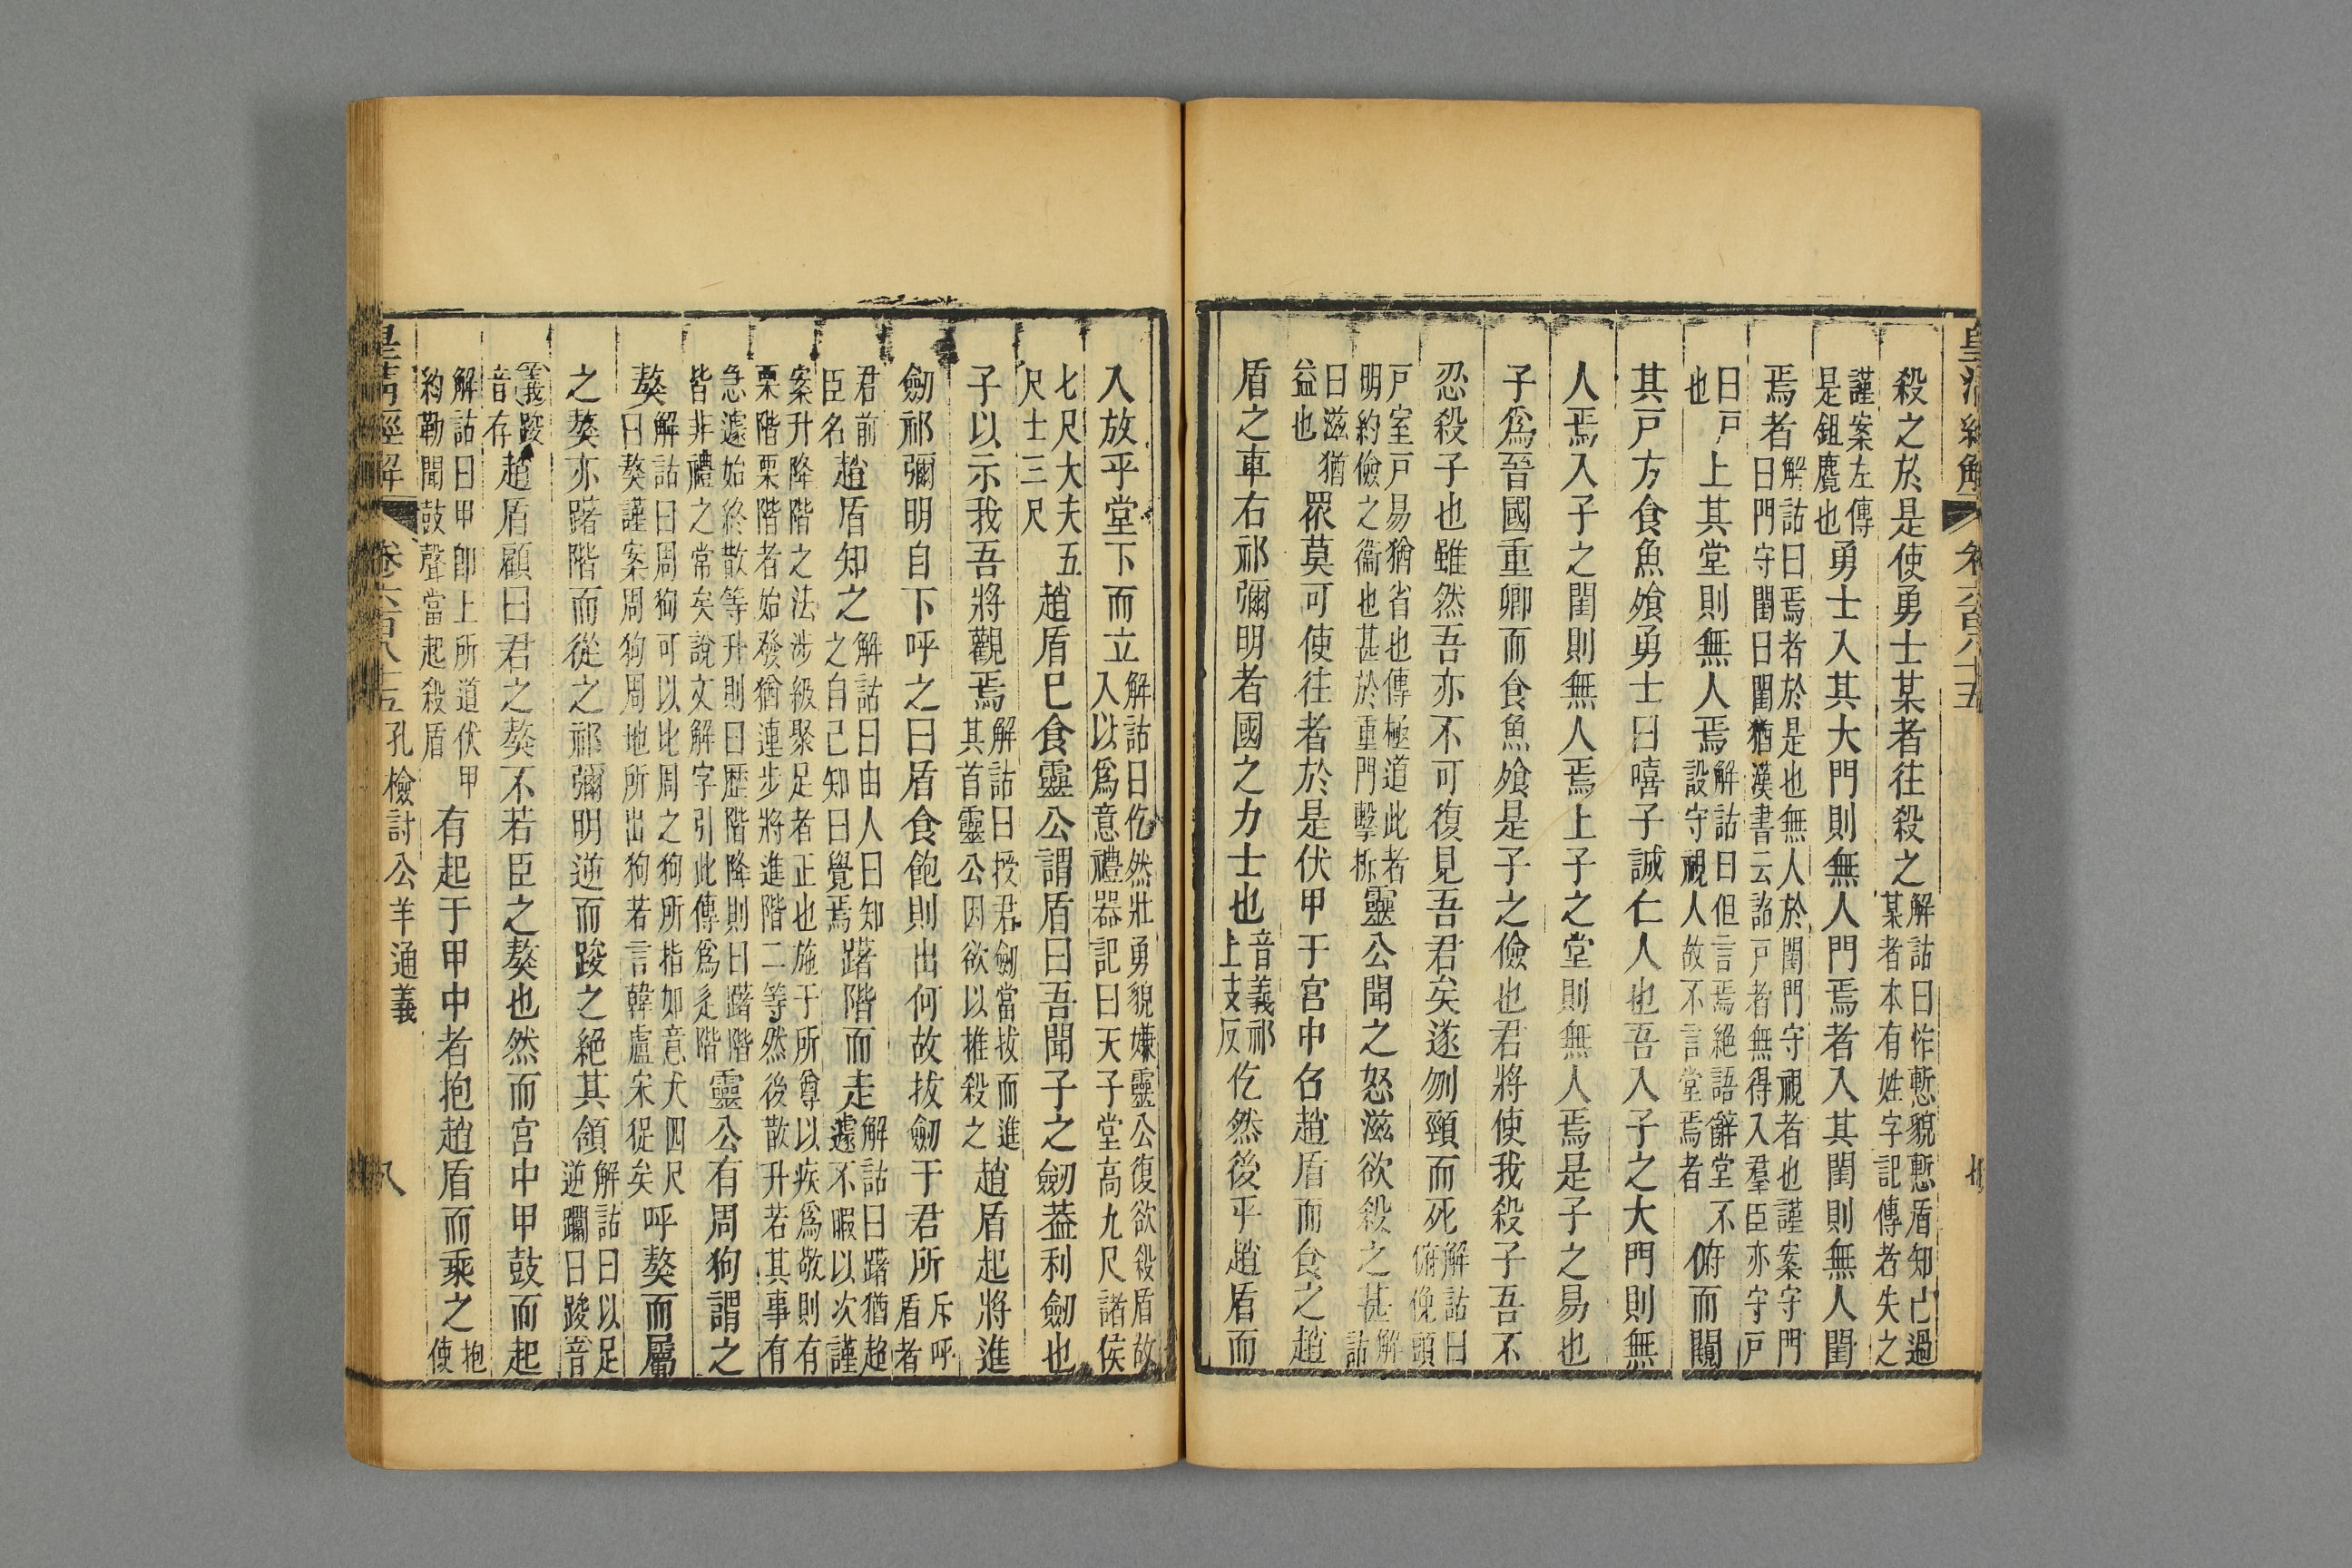 皇清經解 卷六百八十五 七
殺之於是使勇士某者往殺之解詁曰怍慙貌慙盾知己過某者本有姓字記傳者失之
謹案左傳是鉏麑也勇士入其大門則無人門焉者入其閨則無人閨
焉者解詁曰焉者於是也無人於閨門守視者也謹案守門曰門守閨曰閨猶漢書云詣戶者無得入羣臣亦守戶
曰戶也上其堂則無人焉解詁曰但言焉絕語辭堂不設守視人故不言堂焉者俯而闚
其戶方食魚飧勇士曰嘻子誠仁人也吾入子之大門則無
人焉入子之閨則無人焉上子之堂則無人焉是子之易也
子爲晉國重卿而食魚飧是子之儉也君將使我殺子吾不
忍殺子也雖然吾亦不可復見吾君矣遂刎頸而死解詁曰俯俛頭
戶室戶易猶省也傳極道此者明約儉之衞也甚於重門擊柝靈公聞之怒滋欲殺之甚解詁
曰滋猶益也眾莫可使往者於是伏甲于宮中召趙盾而食之趙
盾之車右祁彌明者國之力士也音義祁上支反仡然後乎趙盾而
入放乎堂下而立解詁曰仡然壯勇貌嫌靈公復欲殺盾故入以爲意禮器記曰天子堂高九尺諸侯
七尺大夫五尺士三尺趙盾已食靈公謂盾曰吾聞子之劒葢利劒也
子以示我吾將觀焉解詁曰授君劒當拔而進其首靈公因欲以推殺之趙盾起將進
劒祁彌明自下呼之曰盾食飽則出何故拔劒于君所斥呼盾者
君前臣名趙盾知之解詁曰由人曰知之自己知曰覺焉躇階而走解詁曰躇猶超遽不暇以次謹
案升降階之法涉級聚足者正也施于所尊以疾爲敬則有栗階栗階者始發猶連步將進階二等然後散升若其事有
急遽始終散等升則曰歷階降則曰躇階皆非禮之常矣說文解字引此傳爲辵階靈公有周狗謂之
獒解詁曰周狗可以比周之狗所指如意犬四尺曰獒謹案周狗周地所出狗若言韓盧宋㹱矣呼獒而屬
之獒亦躇階而從之祁彌明逆而踆之絕其頷解詁曰以足逆躢曰踆音
義踆音存趙盾顧曰君之獒不若臣之獒也然而宮中甲鼓而起
解詁曰甲卽上所道伏甲約勒聞鼓聲當起殺盾有起于甲中者抱趙盾而乘之抱使
皇清經解 卷六百八十五 孔檢討公羊通義 八